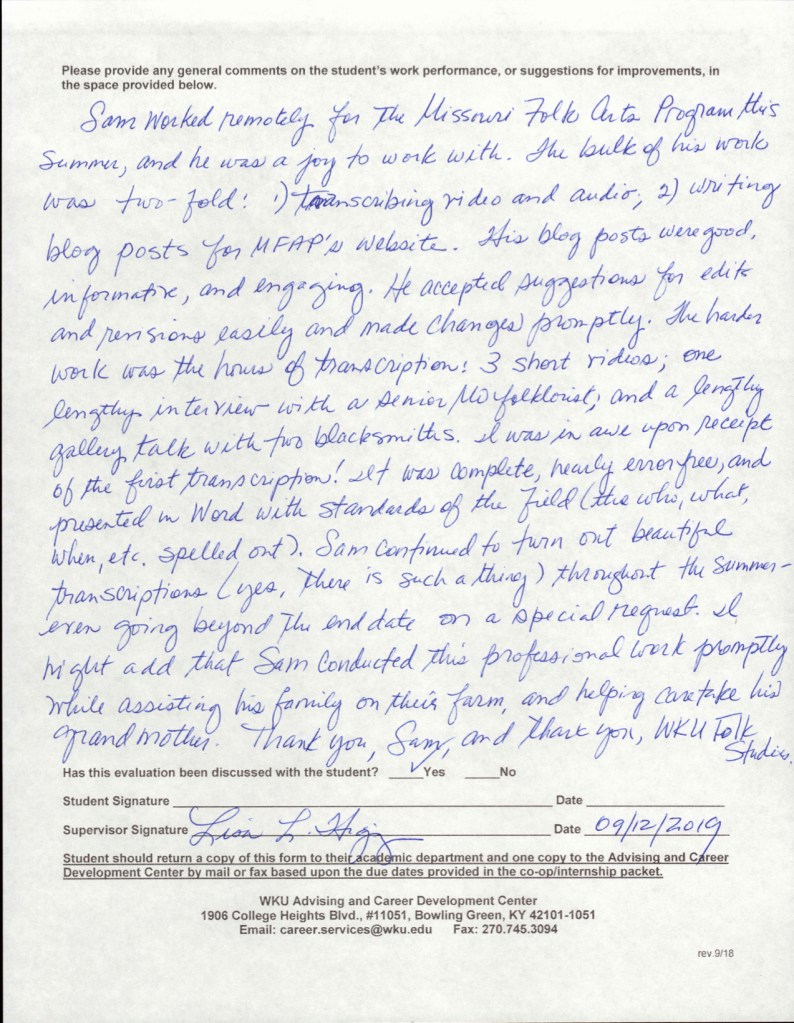 Please provide any general comments on the student's work performance, or suggestions for improvements, in
the space provided below.
Sam worked remotely for the Missouri Folk Arts Program this
summer, and he was a joy to work with. The bulk of his work
was two-fold: 1) transcribing video and audio; 2) writing
blog posts for MFAP's website. His blog posts were good,
informative, and engaging. He accepted suggestions for edits
and revisions easily and made changes promptly. The harder
work was the hours of transcription: 3 short videos; one
lengthy interview with a senior MO folklorist; and a lengthy
gallery talk with two blacksmiths. I was in awe upon receipt
of the first transcription! It was complete, nearly error free, and
presented in Word with standards of the field (the who, what,
when, etc. spelled out). Sam continued to turn out beautiful
transcriptions (yes, there is such a thing) throughout the summer-
even going beyond the end date on a special request. I
might add that Sam conducted this professional work promptly
while assisting his family on their farm, and helping caretake his
grandmother. Thank you, Sam, and thank you, WKU Folk
Studies.
Has this evaluation been discussed with the student? ✓ Yes ____ No
Student Signature ____ Date ____
Supervisor Signature Lisa L. Hig Date 09/12/2019
Student should return a copy of this form to their academic department and one copy to the Advising and Career
Development Center by mail or fax based upon the due dates provided in the co-op/internship packet.
WKU Advising and Career Development Center
1906 College Heights Blvd., #11051, Bowling Green, KY 42101-1051
Email: career.services@wku.edu Fax: 270.745.3094
rev.9/18